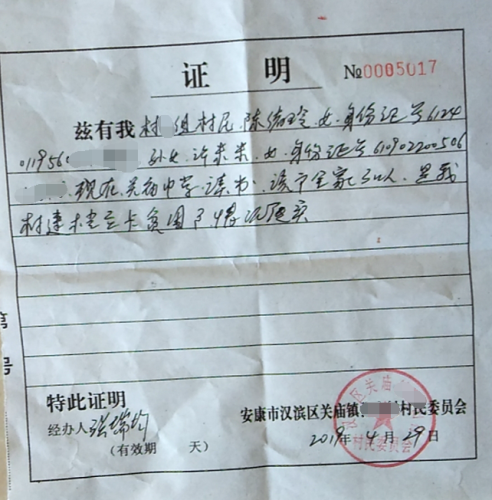 证 明 №0005017
兹有我村 组村民陈绪玲,女,身份证号6124
011956 孙女许来来,女,身份证号610902200506
现在关庙中学读书,该户全家3口人,是我
村建档立卡贫困户,情况属实
第
号
特此证明
经办人
(有效期 天)
安康市汉滨区关庙镇 村民委员会
2019年4月29日
区关庙
村民委员会